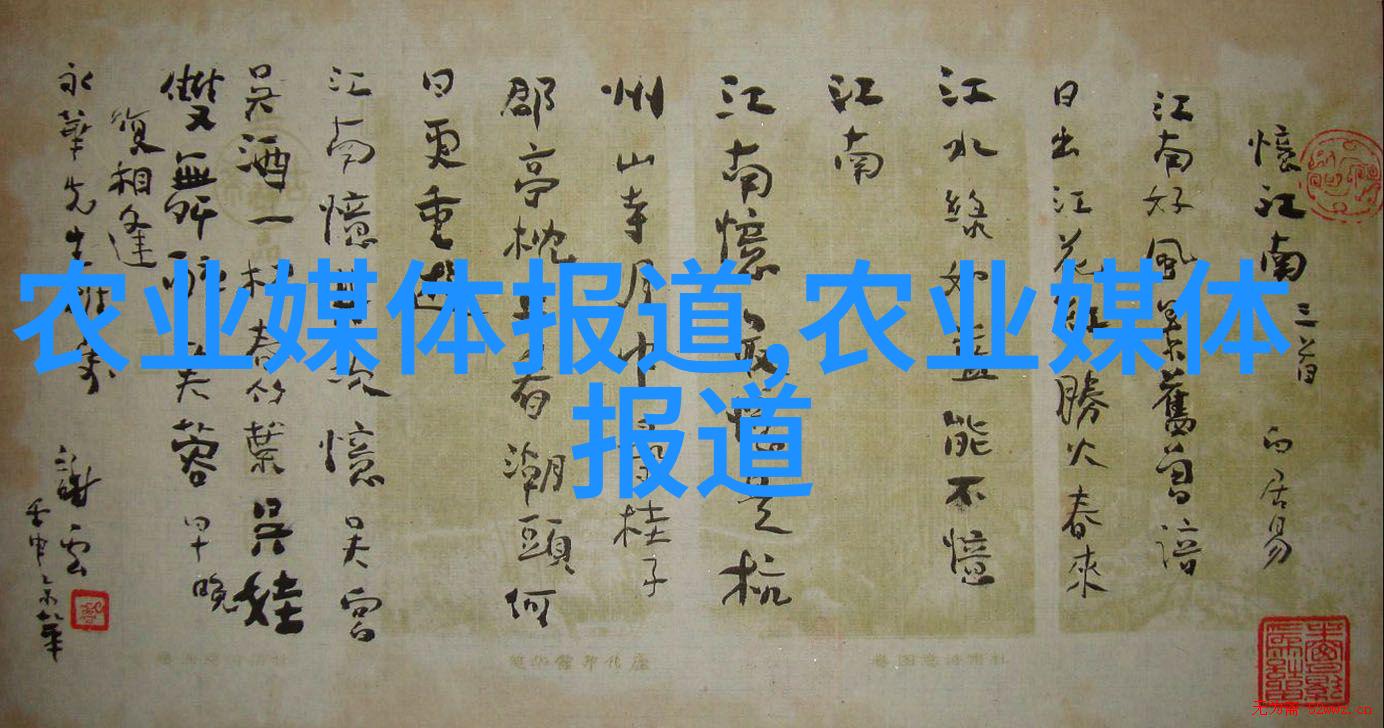 农业媒体报道,农业媒体
报道
憶江南 三首 白居易
江南好風景舊曾諳
日出江花紅勝火春來
江水綠如藍能不憶
江南
江南憶最憶是杭
州山寺月中尋桂子
郡亭枕上看潮頭何
日更重遊
江南憶其次憶吳宮
吳酒一杯春竹葉吳娃
雙舞醉芙蓉早晚
復相逢
永華先生雅
謝雲
壬申京華
无为斋